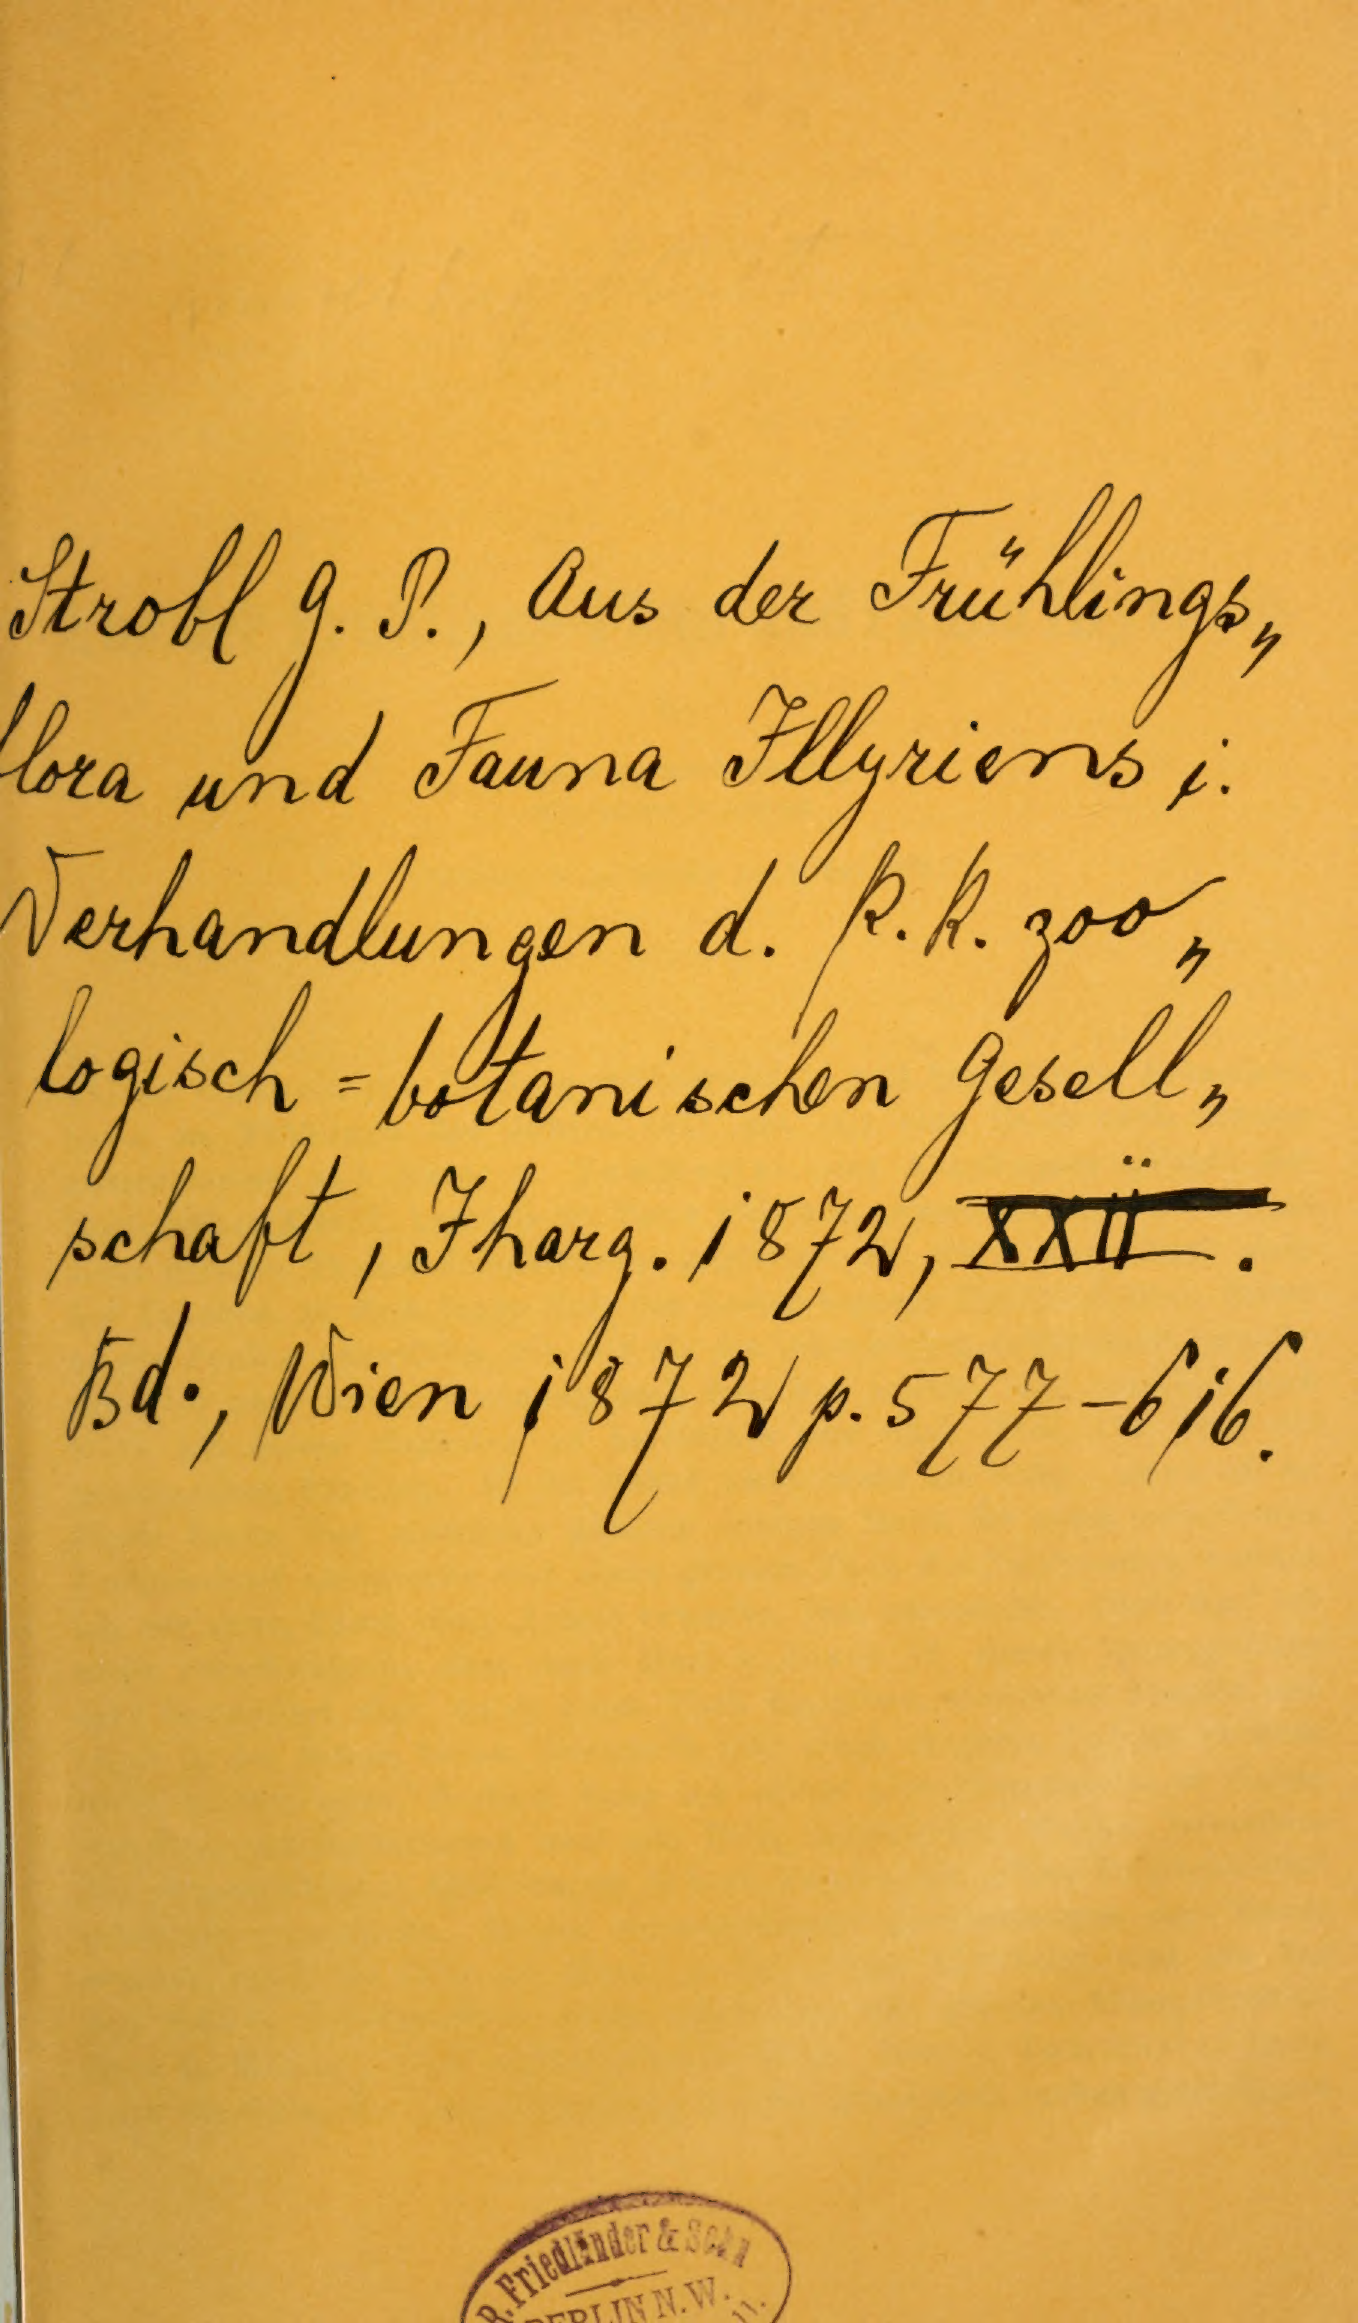 Strobl G. P., Aus der Frühlings„
flora und Fauna Illyriens i.
Verhandlungen d. k. k. zoo„
logisch=botanischen Gesell„
schaft, Jharg. 1872, XXII.
Bd., Wien 1872 p. 577-616.
R. Friedländer & Sohn
BERLIN N.W.
11.